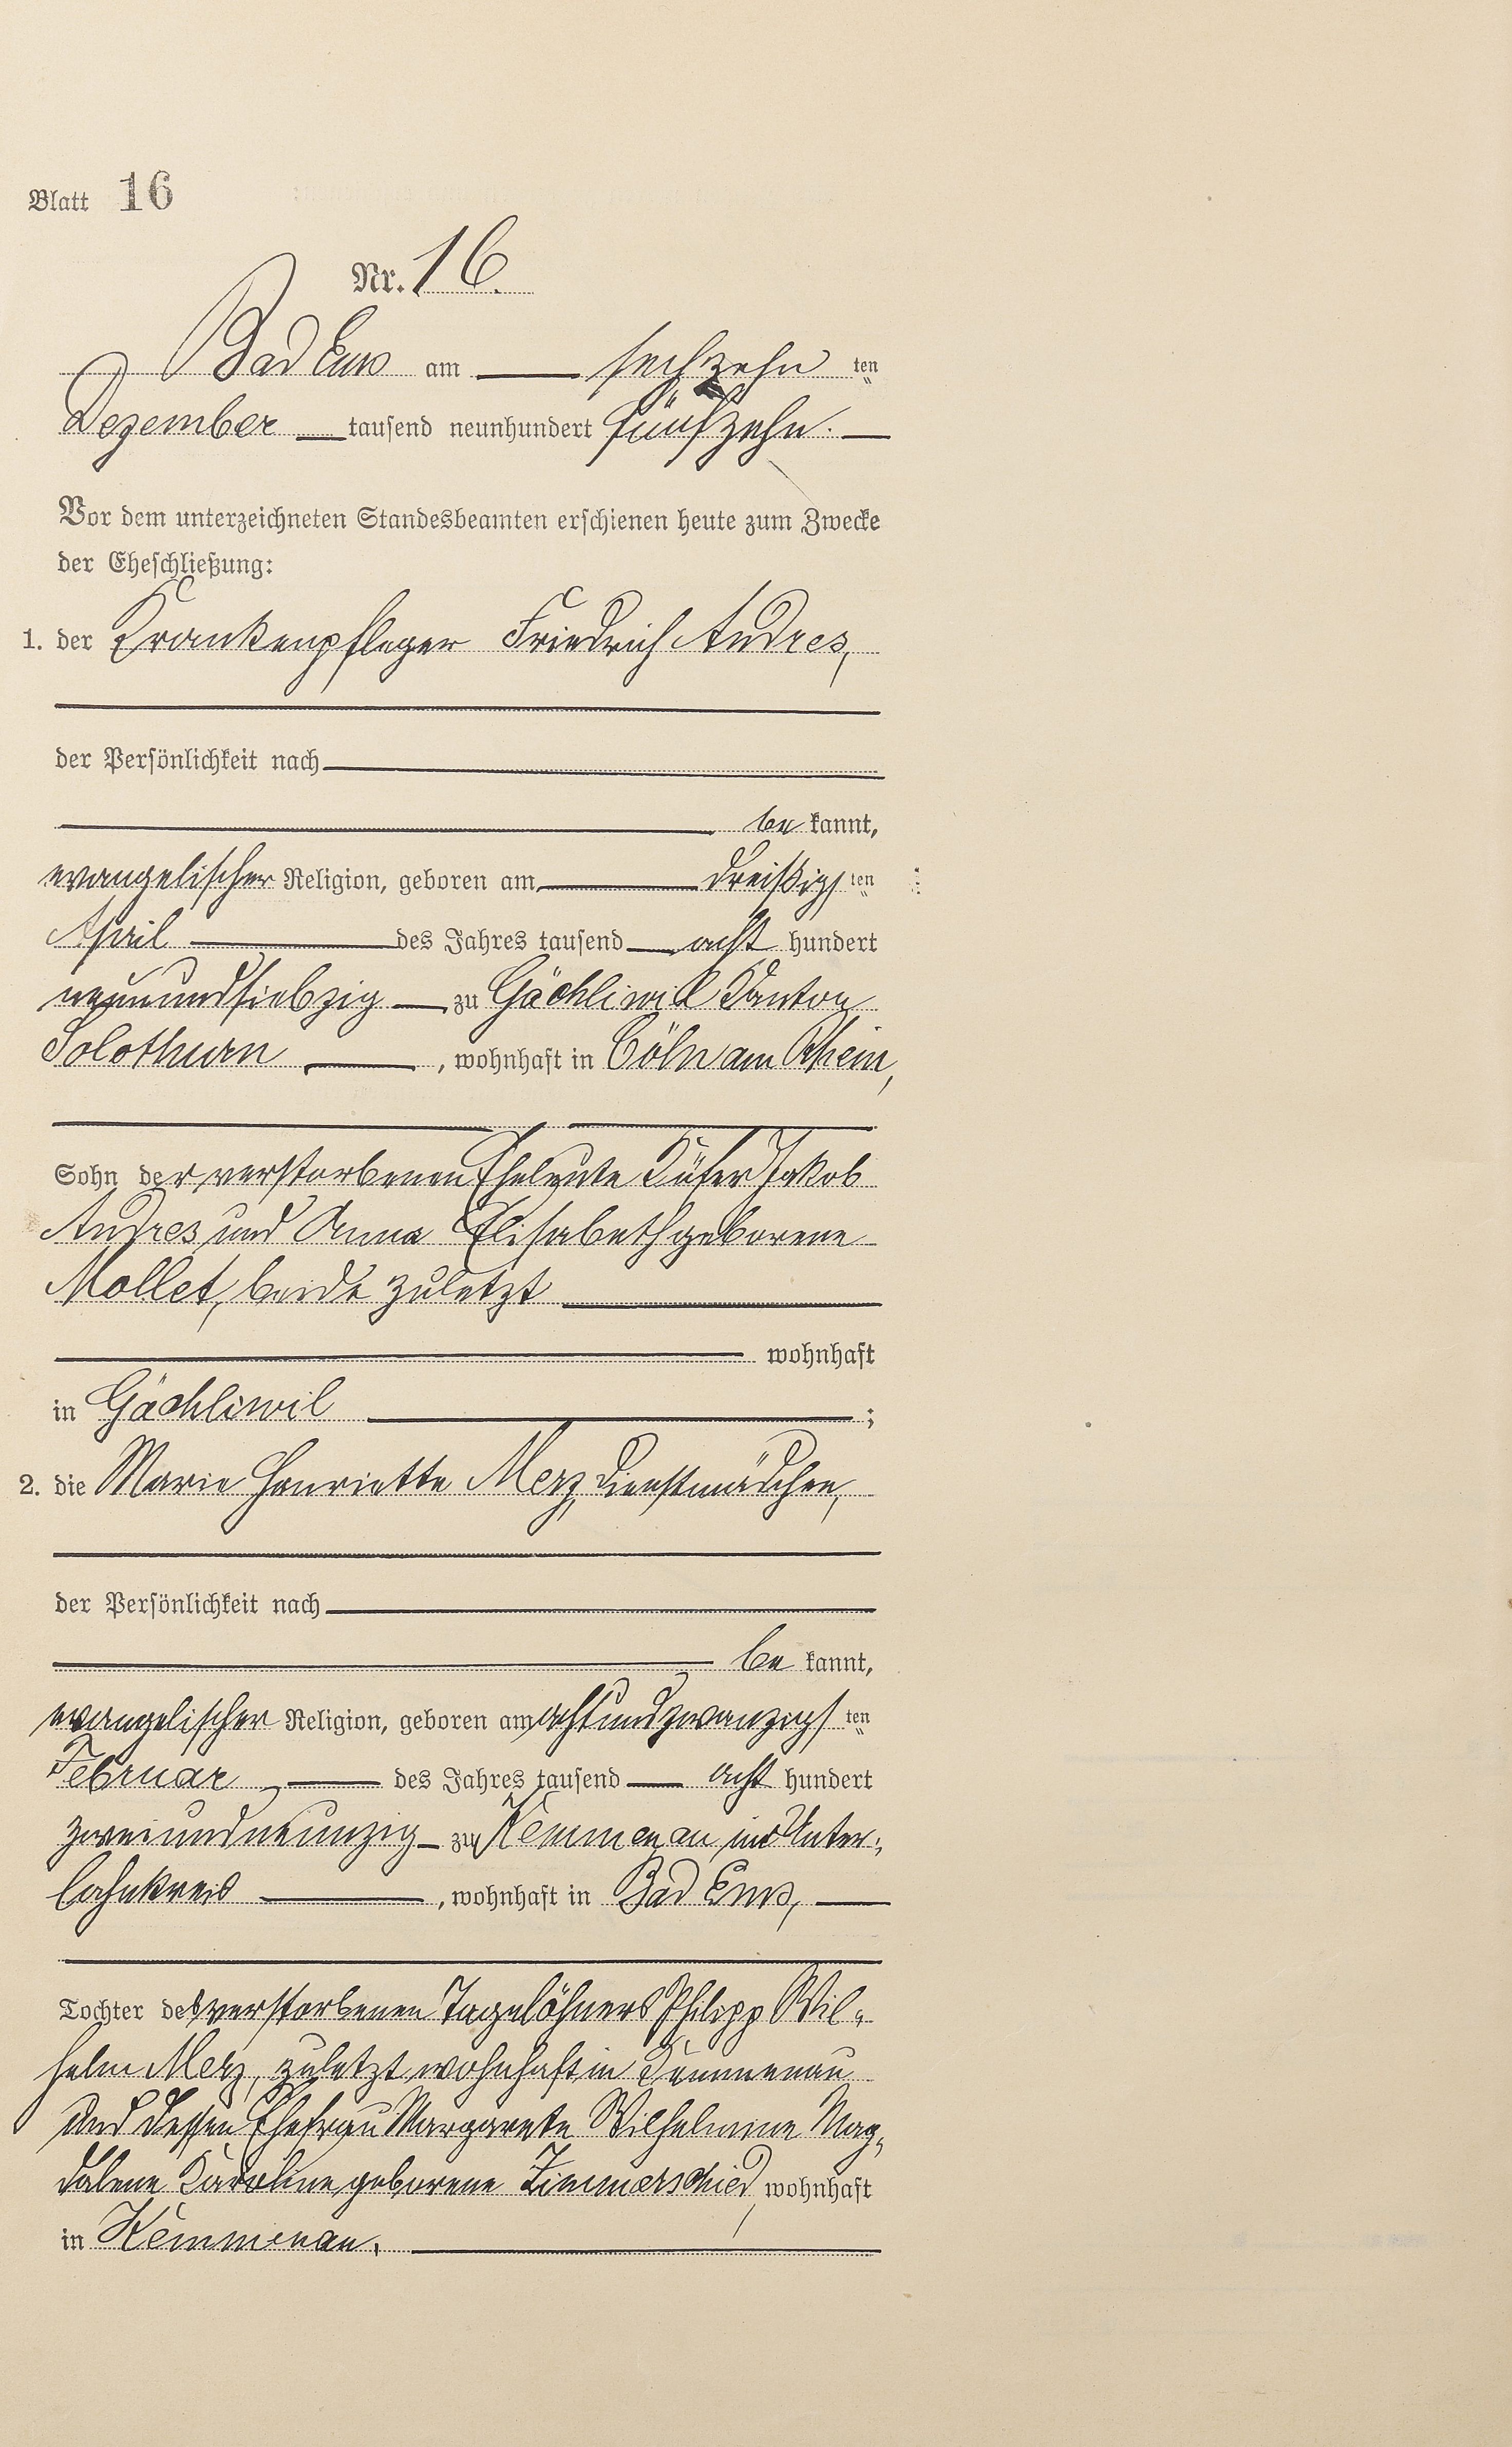 Blatt 16
Nr. 16.
Bad Ems am sechzehn ten
Dezember tausend neunhundert fünfzehn.
Vor dem unterzeichneten Standesbeamten erschienen heute zum Zwecke
der Eheschließung:
1. der Krankenpfleger Friedrich Andres,
der Persönlichkeit nach
be kannt,
evangelischer Religion, geboren am dreißigs ten
April des Jahres tausend acht hundert
neunundsiebzig zu Gächliwil Kanton
Solothurn, wohnhaft in Cöln am Rhein,
Sohn der verstorbenen Eheleute Küfer Jakob
Andres und Anna Elisabeth geborene
Mollet, beide zuletzt
wohnhaft
in Gächliwil ;
2. die Marie Henriette Merz, Dienstmädchen,
der Persönlichkeit nach
be kannt,
evangelischer Religion, geboren am achtundzwanzigs ten
Februar des Jahres tausend acht hundert
zweiundneunzig zu Kemmenau im Unter-
lahnkreis, wohnhaft in Bad Ems,
Tochter des verstorbenen Tagelöhners Philipp Wil-
helm Merz, zuletzt wohnhaft in Kemmenau
und dessen Ehefrau Margarete Wilhelmine Mag-
dalene Karoline geborene Zimmerschied, wohnhaft
in Kemmenau.